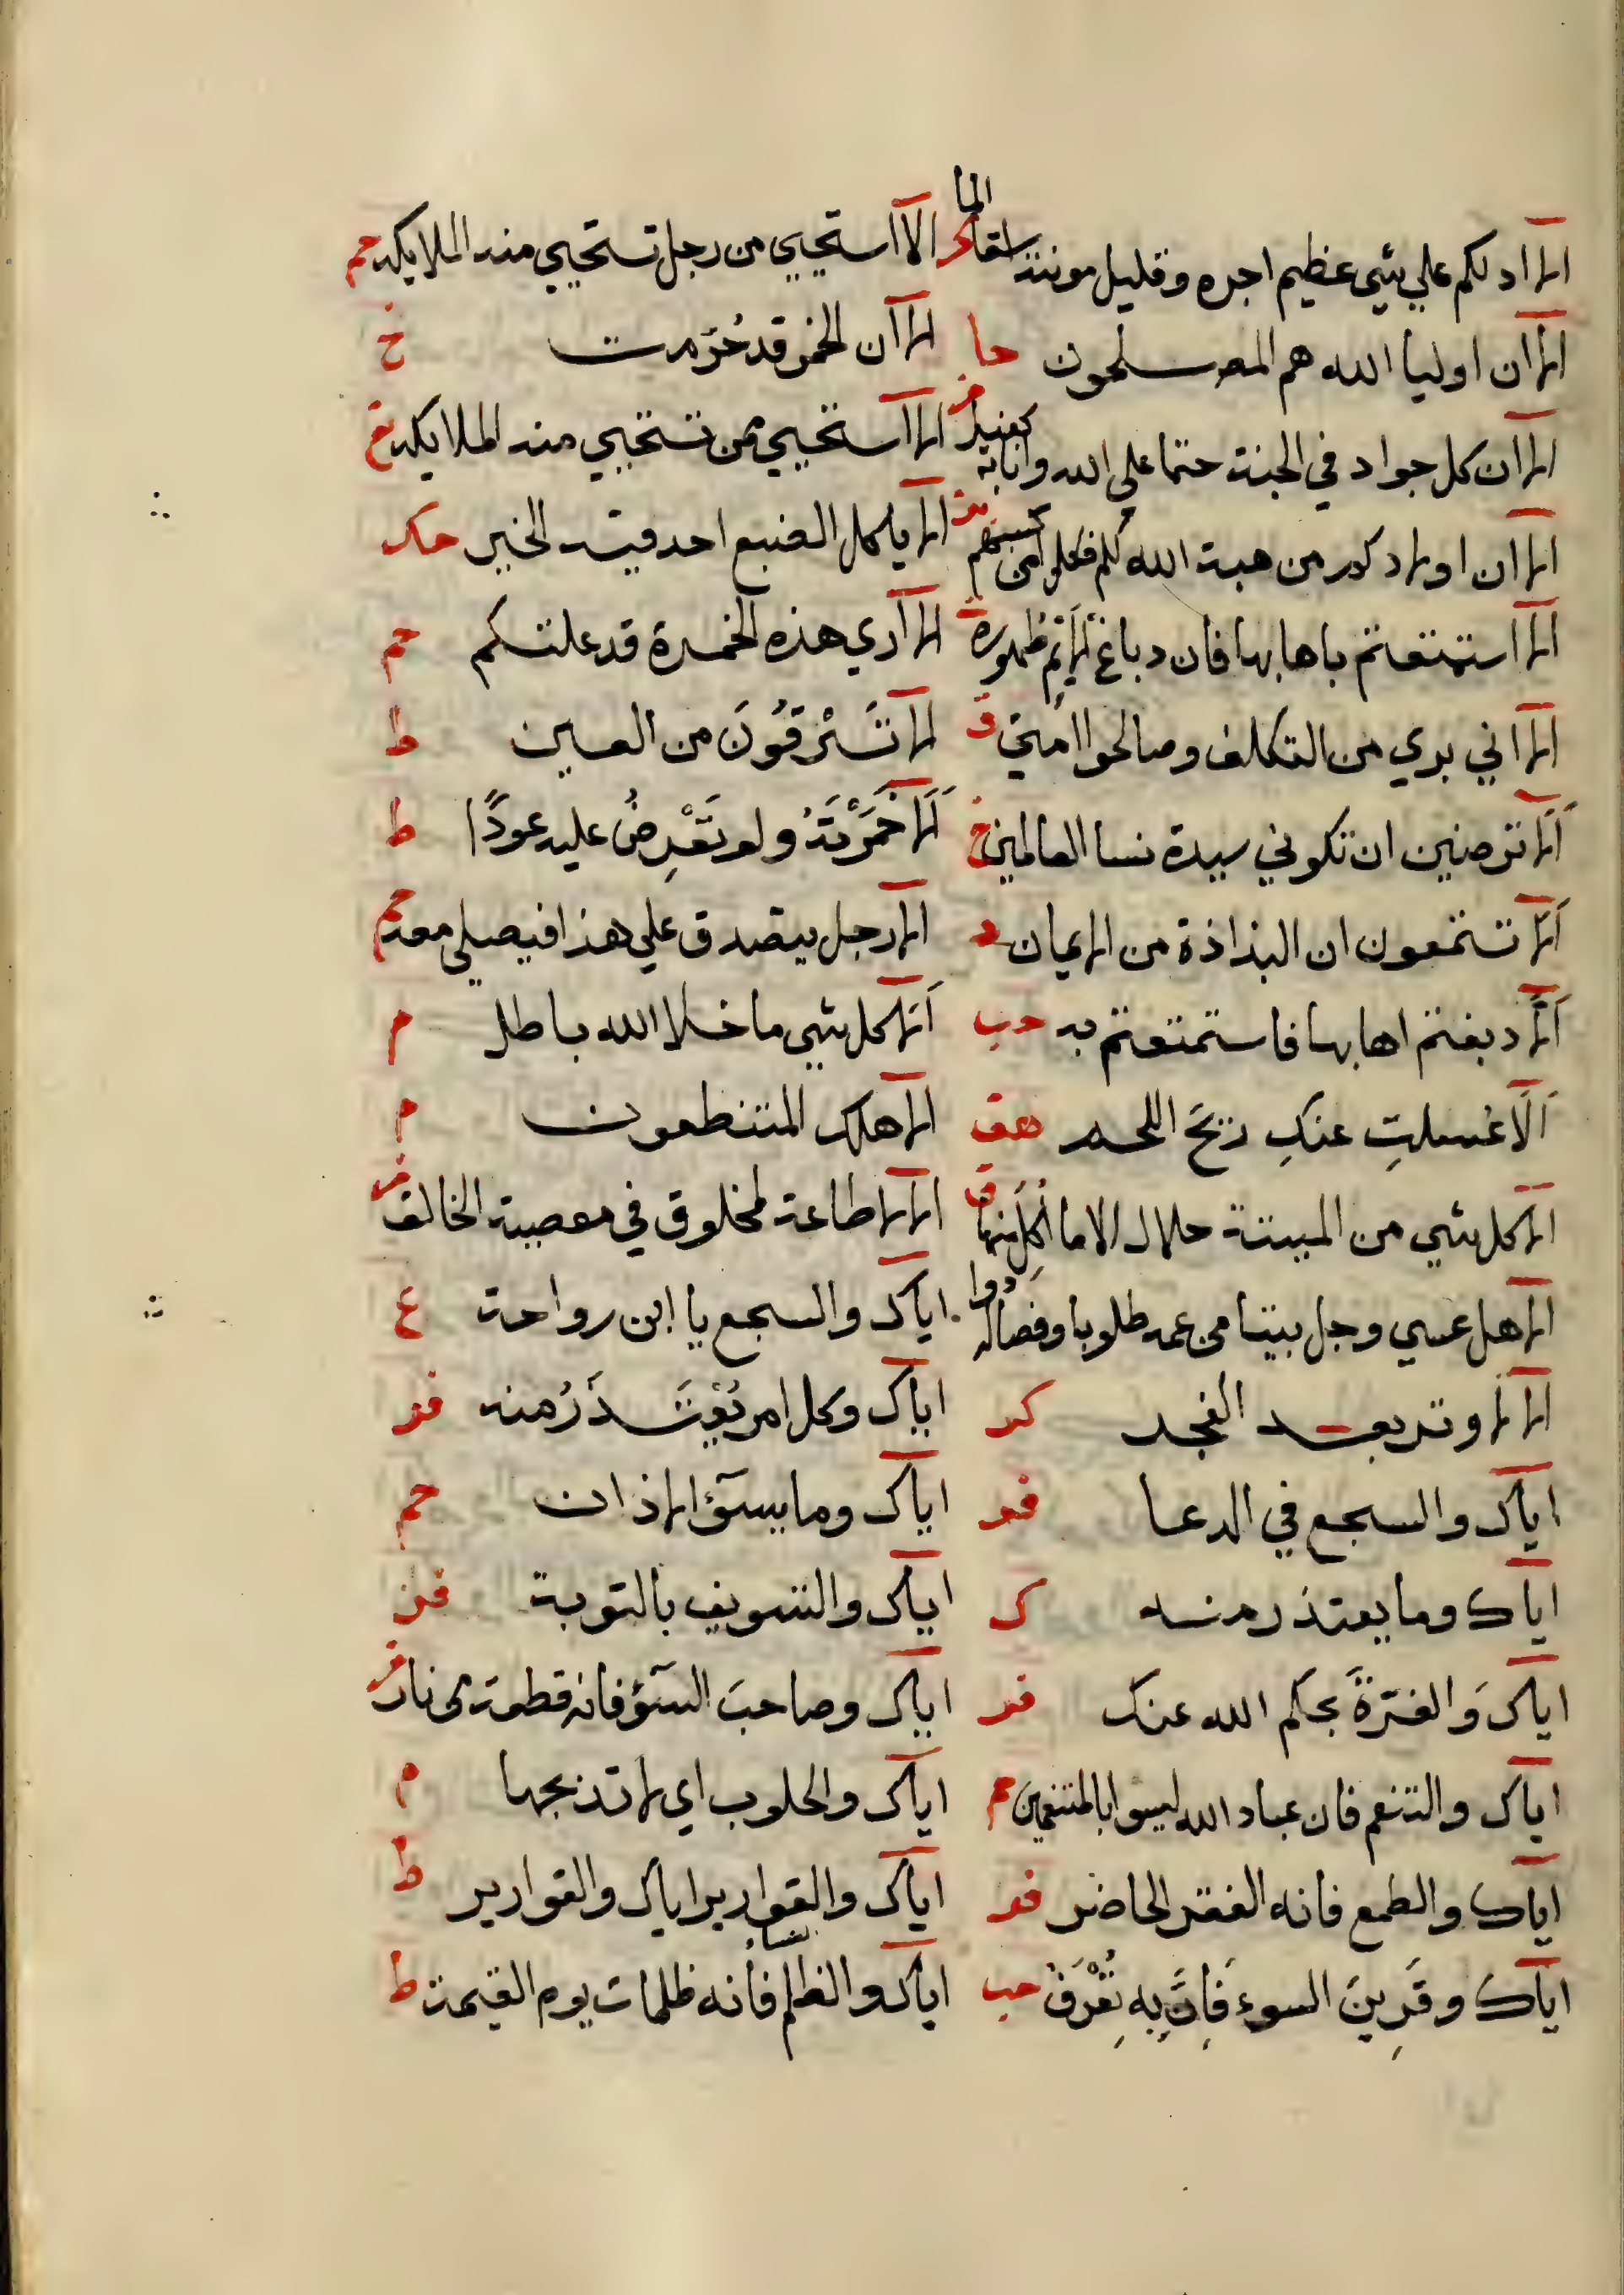 الا ادلكم علي شي عظيم اجره وقليل مونته سقا الما
الا ان اوليا الله هم المصلحون حا
الا ان كل جواد في الجنة حتما علي الله وانا به كفيل
الا ان اولادكم من هبة الله لكم فكلوا من كسبهم
الا استمتعتم باهابها فان دباغ الاديم طهوره
الا اني بري من التكلف وصالحوا امتي ق
اَلَا ترضين ان تكوني سيدة نسا العالمين خ
اَلَا تسمعون ان البذاذة من الايمان د
اَلَّا دبغتم اهابها فاستمتعتم به حب
اَلَا غسلتِ عنكِ ريحَ اللحم هق
الا كل شي من الميتة حلال الا ما اُكِلَ منها ق
الا هل عسي رجل يبيتا من عمه طلوبا وفصالہ
الا لا وتر بعد الفجر كر
اياك والسجع في الدعا فر
اياك وما يعتذر منه ك
اياك وَالغرّةَ بحكم الله عنك فر
اياك والتنعم فان عباد الله ليسوا بالمتنعمين حم
اياك والطمع فانه الفقر الحاضر فر
اياك وقَرِينَ السوء فَاِنَّكَ بِهِ تُعْرَفُ حب
الا استحيي من رجل تستحيي منه الملايكه حم
الا ان الخمر قد حُرّمت خ
الا استحيي ممن تستحيي منه الملايكه ع
الا ياكل الضبع احد فيه الخير حك
الا اري هذه الحمرة قد علتكم حم
الا تَسْتَرْقُونَ من العين ط
اَلَا خَمَّرْتَهُ ولو تَعْرِضُ عليه عودًا ط
الا رجل يتصدق علي هذا فيصلي معه حم
اَلَا كل شي ما خلا الله باطل م
الا هلك المتنطعون م
الا لا طاعة لمخلوق في معصية الخالق
اياك والسجع يا ابن رواحة ع
اياك وكل امر يُعْتَذَرُ منه فر
اياك وما يسؤ الاذان حم
اياك والتسويف بالتوبة فر
اياك وصاحبَ السَّوْء فانه قطعة من نار
اياك والحلوب اي لا تذبحها م
اياك والقوارير اياك والقوارير ط
اياك والظلم فانه ظلمات يوم القيمة ط